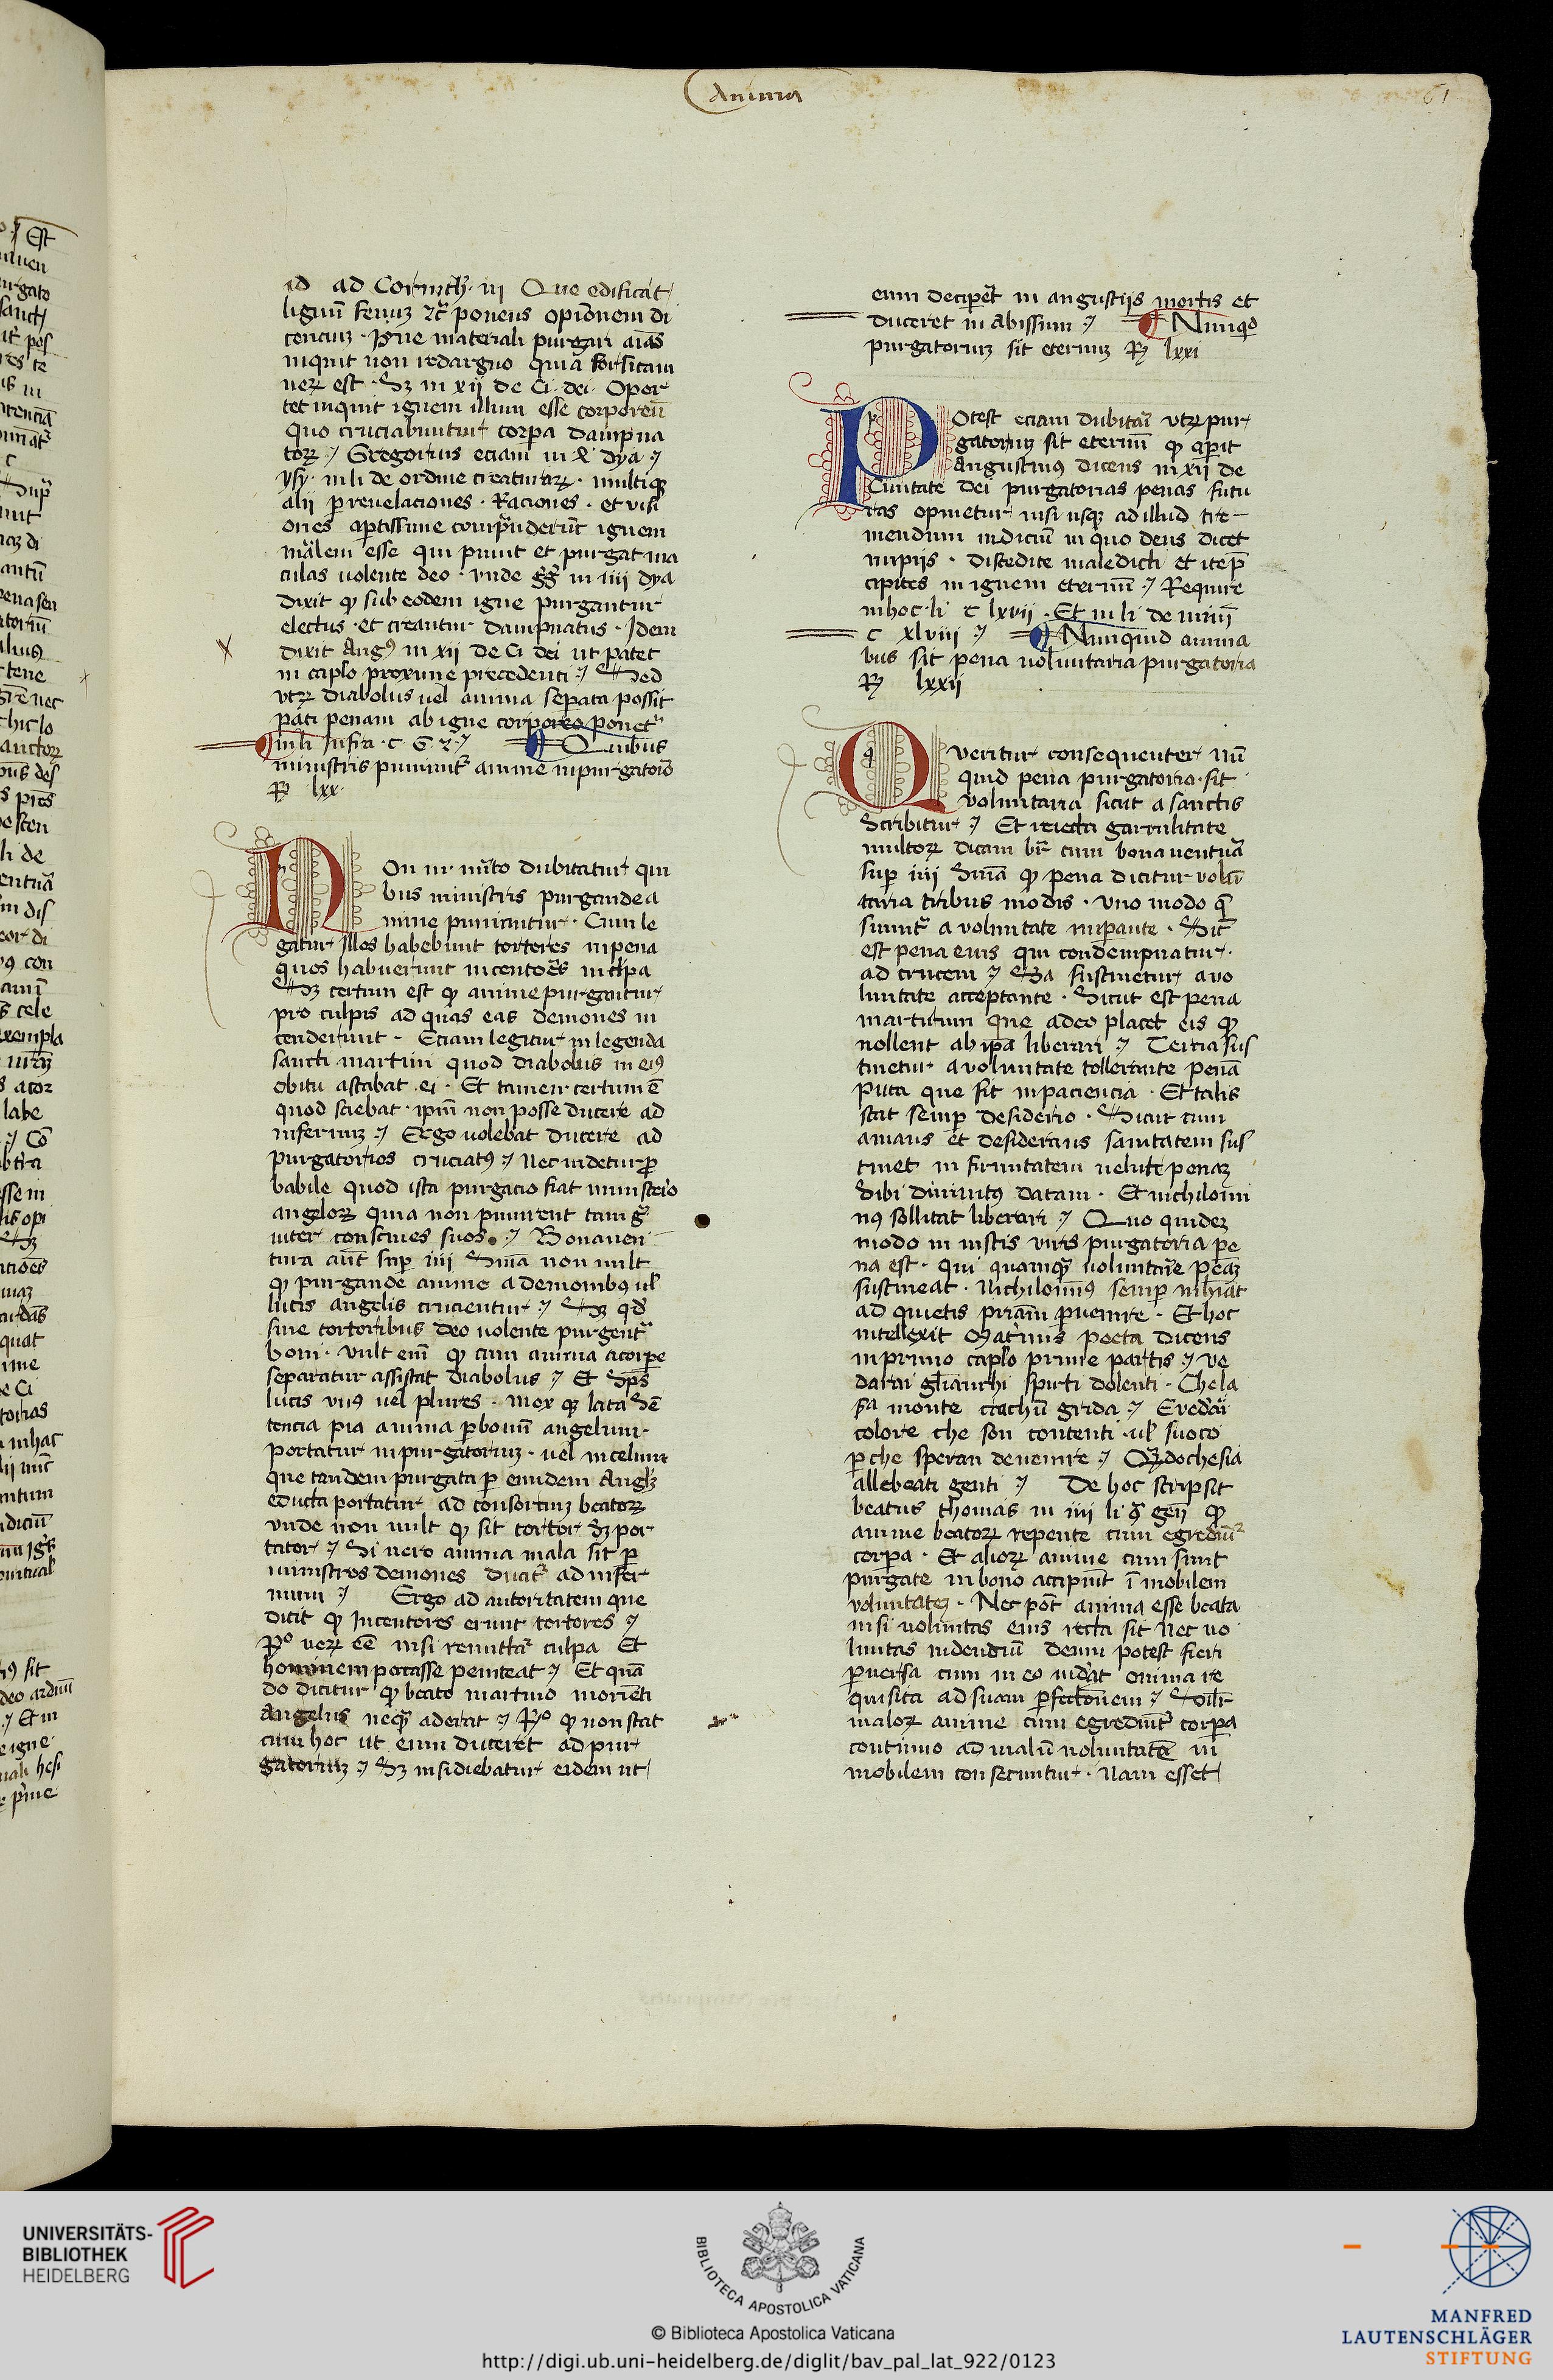 Anima
61
id ad Corinth. iij Que edificat
lignū fenuꝫ ꝛc̄ ponens opīonem di
cenciuꝫ . Igne materiali purgari aīas
inquit non redarguo quia forsitam
ueꝝ est . Sꝫ in xij de Ci. dei. Opor
tet inquit ignem illum esse corporeū
quo cruciabuntur corpa dampna
toꝝ Gregorius eciam in dya
ysy. in li de ordine creaturaꝝ . multiqꝫ
alij p reuelaciones . Raciones . et visi
ones aptissime comp̄nderūt ignem
mālem esse qui punit et purgat ma
culas uolente deo . vnde gḡ in iiij dya
dixit ꝙ sub eodem igne purgantur
electus . et creantur dampnatus . Idem
dixit Augꝰ in xij de Ci dei ut patet
in caplo proxime precedenti Sed
vtꝝ diabolus uel anima sepata possit
pati penam ab igne corporeo ponet
in li infra . c Quibus
ministris puniunt anime in purgatorio
R lxx.
Non inmito dubitatur qui
bus ministris purgande a
nime puniantur . Cum le
gatur Illos habebunt tortores in pena
quos habuerunt incentores in clpa
Sꝫ certum est ꝙ anime purgantur
pro culpis ad quas eas demones in
tenderunt . Eciam legitur in legenda
sancti martini quod diabolus in eiꝰ
obitu astabat ei . Et tamen certum ē
quod sciebat . ipm̄ non posse ducere ad
infernuꝫ Ergo uolebat ducere ad
purgatorios cruciatꝰ Nec uidetur ꝓ
babile quod ista purgacio fiat ministerio
angeloꝝ quia non punirent tam gͣ
uiter conciues suos . Bonauen
tura aūt sup iiij Sniā non uult
ꝙ purgande anime a demonibꝰ ul
lucis angelis crucientur Sꝫ qd
sine tortoribus deo uolente purgent
boni . vult em̄ ꝙ cum anima a corpe
separatur assistat diabolus Et sps
lucis vnꝰ uel plures . mox qꝫ lata sē
tencia pia anima p bonū angelum.
portatur in purgatoriuꝫ . uel in celum
que tandem purgata p eundem Anglꝫ
educta portatur ad consorciuꝫ beatoꝝ
vnde non uult ꝙ sit tortor sꝫ por
tator Si uero anima mala sit p
ministros demones ducit ad infer
num Ergo ad autoritatem que
dicit ꝙ Incentores erunt tortores
Rº ueꝝ eē nisi remittat culpa Et
hominem pccasse peniteat Et quā
do dicitur ꝙ beato martino moriēti
Angelus neqͣ aderat Rº ꝙ non stat
cum hoc ut eum duceret ad pur
gatoriuꝫ Sꝫ insidiebatur eidem ut
eum deciperet in angustijs mortis et
duceret in abissum Nunqd
purgatoriuꝫ sit eternuꝫ R lxxi
Potest eciam dubitari vtꝝ pur
gatoriuꝫ sit eternū ꝙ aperit
Augustinus dicens in xij de
Ciuitate dei purgatorias penas futu
ras opinetur nisi usqꝫ ad illud tre
mendum iudiciū in quo deus dicet
impijs . discedite maledicti et itep
cipites in ignem eternū Require
in hoc . li c lxvij . Et in li de
c xlviij Nunquid anima
bus sit pena uoluntaria purgatoria
R lxxij
Queritur consequenter nū
quid pena purgatoria . sit
voluntaria sicut a sanctis
scribitur Et reiecta garrulitate
multoꝝ dicam br̄ cum bonauentura
sup iiij Sniā ꝙ pena dicitur volū
taria tribus modis . vno modo q̄
sumit a voluntate imperante . Sic
est pena eius qui condempnatur .
ad crucem Sa sustinetur a vo
luntate acceptante . Sicut est pena
martirum que adeo placet eis ꝙ
nollent ab ipā liberari Tercia sus
tinetur a voluntate tollerante penā
Puta que fit in paciencia . Et talis
stat semp desiderio . Sicut cum
amans et desiderans sanitatem sus
tinet in firmitatem uelut penaꝫ
sibi diuinitꝰ datam . Et nichilomi
nꝰ sollicitat liberari Quo quideꝫ
modo in iustis viris purgatoria pe
na est . qui quamqͣ uoluntarie penaꝫ
sustineat . Nichilominꝰ semp inhiat
ad quietis priām puenire . Et hoc
intellexit poeta dicens
in primo caplo prime partis ve
darai gliantichi spirti dolenti . Che la
sa monte ciachū grida E vedrai
colore che son contenti . ul fuoco
p che speran de uenire Qdo che sia
alle beati genti De hoc scripsit
beatus thomas in iiij li gͣ gen ꝙ
anime beatoꝝ repente cum egrediut
corpa . Et alioꝝ anime cum sunt
purgate in bono accipiūt īmobilem
voluntateꝫ . Nec pot anima esse beata
nisi uoluntas eius recta sit Nec uo
luntas uidendiū deum potest fieri
puersa cum in eo uideat omnia re
quisita ad suam pfectionem Sīlr
maloꝝ anime cum egrediunt corpa
continuo ad malū uoluntatē in
mobilem consecuntur . Nam esset
UNIVERSITÄTS-
BIBLIOTHEK
HEIDELBERG
BIBLIOTECA APOSTOLICA VATICANA
© Biblioteca Apostolica Vaticana
http://digi.ub.uni-heidelberg.de/diglit/bav_pal_lat_922/0123
MANFRED
LAUTENSCHLÄGER
STIFTUNG